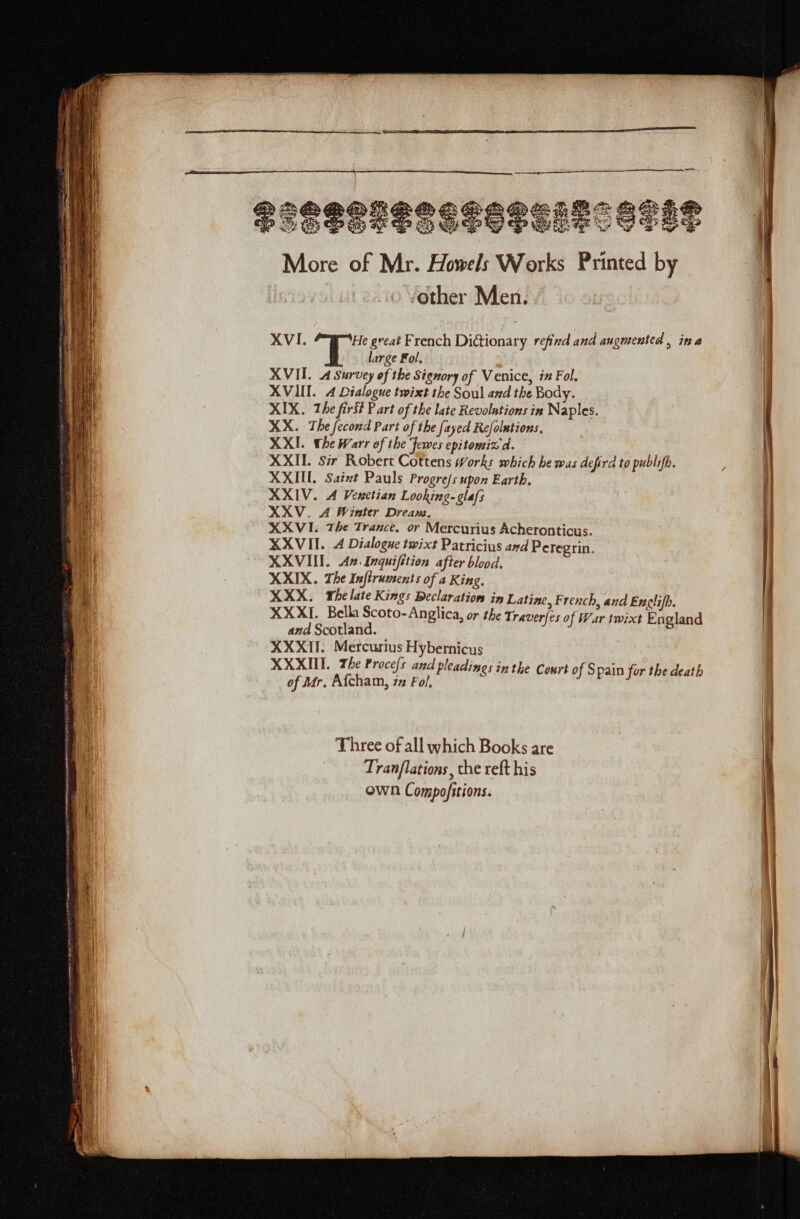 More of Mr. Howels Works Printed by
other Men.
XVI. THe great French Dictionary refind and augmented, in a
large Fol.
XVII. A Survey of the Signory of Venice, in Fol.
XVIII. A Dialogue twixt the Soul and the Body.
XIX. The first Part of the late Revolutions in Naples.
XX. The ſecond Part of the ſayed Reſolutions.
XXI. The Warr of the Jewes epitomiz'd.
XXII. Sir Robert Cottens Works which he was deſird to publiſh.
XXIII. Saint Pauls Progreſs upon Earth.
XXIV. A Venetian Looking-glaſs
XXV. A Winter Dream.
XXVI. The Trance, or Mercurius Acheronticus.
XXVII. A Dialogue twixt Patricius and Peregrin.
XXVIII. An Inquiſition after blood.
XXIX. The Inſtruments of a King.
XXX. The late Kings Declaration in Latine, French, and Engliſh.
XXXI. Bella Scoto-Anglica, or the Traverſes of War twixt England
and Scotland.
XXXII. Mercurius Hybernicus
XXXIII. The Proceſs and pleadings in the Court of Spain for the death
of Mr. Aſcham, in Fol.
Three of all which Books are
Tranſlations, the reſt his
own Compoſitions.